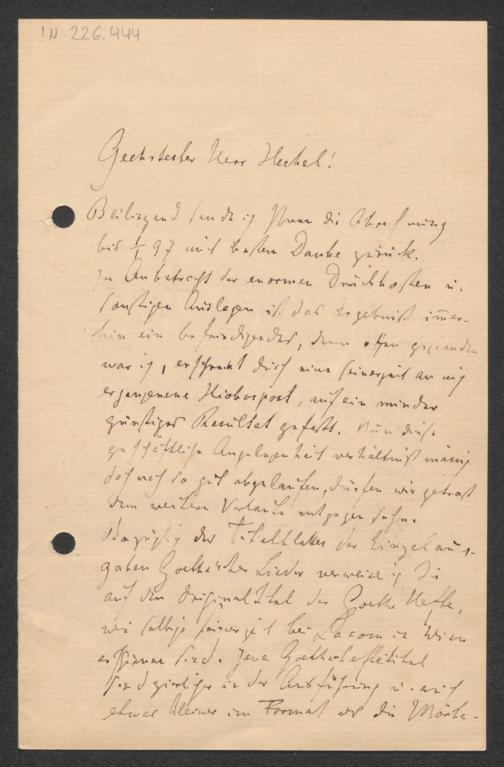 I.N. 226.444
Geehrtester Herr Heckel!
Beiliegend sende ich Ihnen die Abrechnung
bis 1/1 97 mit bestem Danke zurück.
In Anbetracht der enormen Druckkosten u.
sonstigen Auslagen ist das Ergebniß immer-
hin ein befriedigendes, denn offen gestanden
war ich, erschreckt durch eine seinerzeit an mich
ergangene Hiobspost, auf ein minder
günstiges Resultat gefaßt. Nun diese
geschäftliche Angelegenheit verhältnißmässig
doch noch so gut abgelaufen, dürfen wir getrost
dem weitern Verlaufe entgegen sehn.
Bezüglich der Titelblätter der Einzelaus-
gaben Goethe'scher Lieder verweise ich Sie
auf den Originaltitel der Goethe Hefte,
wie selbige seinerzeit bei Lacom in Wien
erschienen sind. Jene Goetheheftetitel
sind zierlicher in der Ausführung u. auch
etwas kleiner im Format als die Mörike-